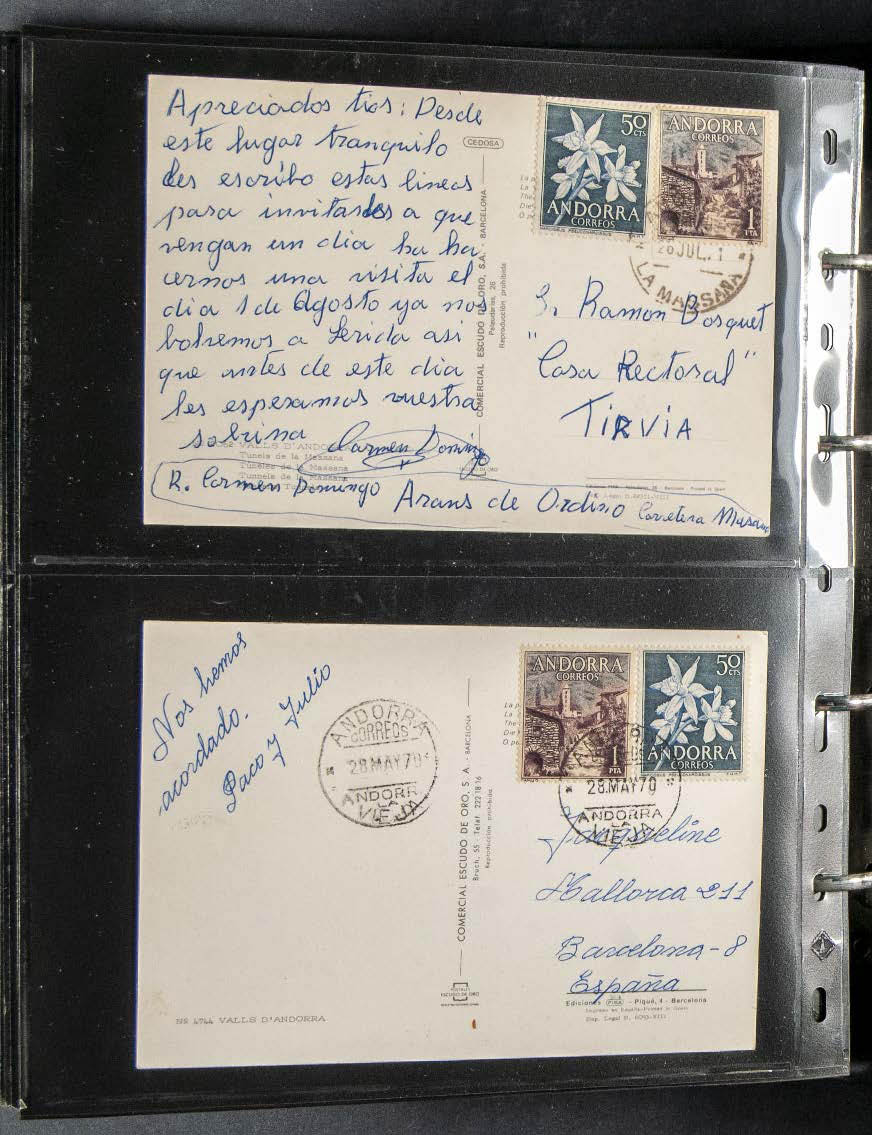 Apreciados tios: Desde
este lugar tranquilo
les escribo estas lineas
para invitarles a que
vengan un dia ha ha
cernos una visita el
dia 1 de Agosto ya nos
bolvemos a Lerida asi
que antes de este dia
les esperamos vuestra
sobrina Carmen Domingo
VALLS D'ANDORRA
Tunels de la Massana
Tuneles de la Massana
Tunnels de la Massana
R. Carmen Domingo Arans de Ordino Carretera
CEDOSA
COMERCIAL ESCUDO DE ORO, S.A. - BARCELONA
Palaudarias, 26
Reproducción prohibida
50 CTS
ANDORRA
CORREOS
ANDORRA
CORREOS
1
PTA
26 JUL.
LA MASSANA
S. Ramon Bosquet
"Casa Rectoral"
TIRVIA
Nos hemos
acordado.
Paco y Julio
ANDORRA
CORREOS
28.MAY70
ANDORRA
LA
VIEJA
COMERCIAL ESCUDO DE ORO, S. A. - BARCELONA
Bruch, 55 - Telef. 222 18 16
Reproducción prohibida
POSTALES
ESCUDO DE ORO
ANDORRA
CORREOS
1
PTA
50
CTS
ANDORRA
CORREOS
28.MAY70
ANDORRA
LA
VIEJA
Jacqueline
Mallorca 211
Barcelona-8
España
Ediciones FISA - Piqué, 4 - Barcelona
Impreso en España-Printed in Spain
Nº 4744 VALLS D'ANDORRA